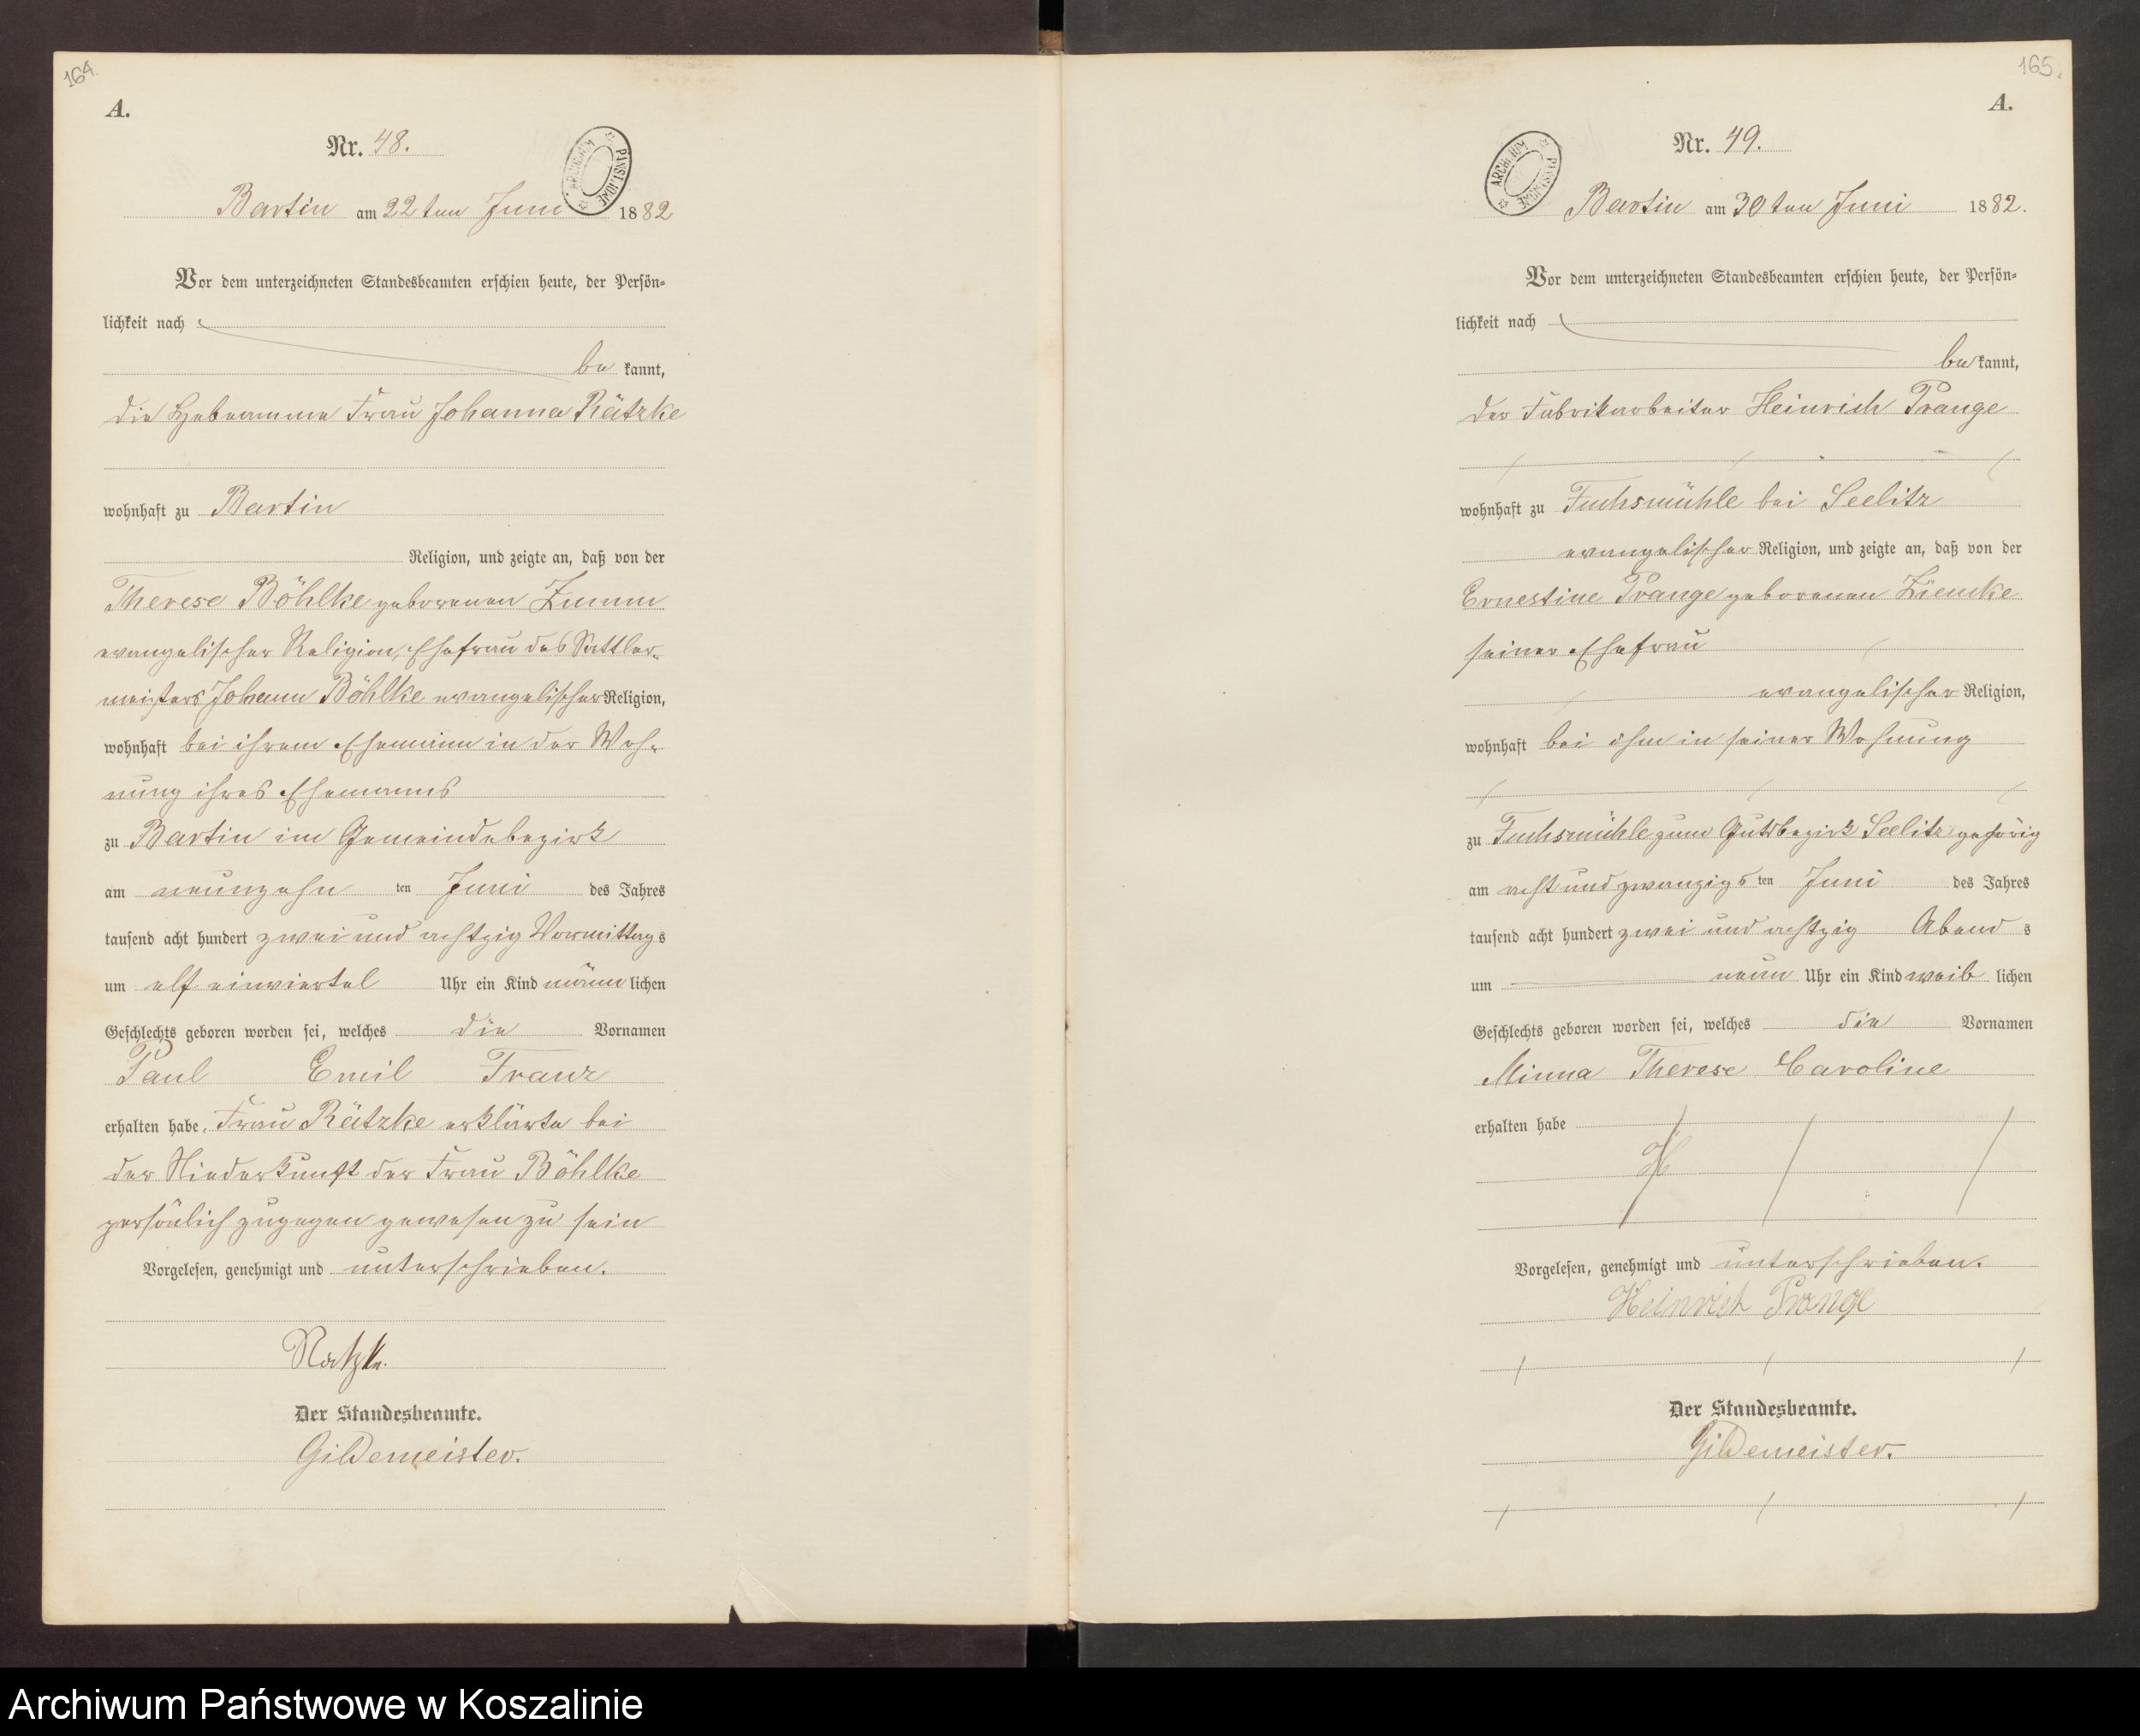 164.
A.
Nr. 48.
ARCHIWUM PAŃSTWOWE
Bartin am 22ten Juni 1882
Vor dem unterzeichneten Standesbeamten erschien heute, der Persön-
lichkeit nach
be kannt,
die Hebeamme Frau Johanna Rätzke
wohnhaft zu Bartin
Religion, und zeigte an, daß von der
Therese Böhlke geborenen Zumm
evangelischer Religion, Ehefrau des Sattler-
meisters Johann Böhlke evangelischer Religion,
wohnhaft bei ihrem Ehemann in der Woh-
nung ihres Ehemanns
zu Bartin im Gemeindebezirk
am neunzehn ten Juni des Jahres
tausend acht hundert zwei und achtzig Vormittags
um elf einviertel Uhr ein Kind männ lichen
Geschlechts geboren worden sei, welches die Vornamen
Paul Emil Franz
erhalten habe. Frau Rätzke erklärte bei
der Niederkunft der Frau Böhlke
persönlich zugegen gewesen zu sein
Vorgelesen, genehmigt und unterschrieben.
Ratzke.
Der Standesbeamte.
Gildemeister.
165.
A.
Nr. 49.
ARCHIWUM PAŃSTWOWE
Bartin am 30ten Juni 1882.
Vor dem unterzeichneten Standesbeamten erschien heute, der Persön-
lichkeit nach
be kannt,
der Fabrikarbeiter Heinrich Prange
wohnhaft zu Fuchsmühle bei Seelitz
evangelischer Religion, und zeigte an, daß von der
Ernestine Prange geborenen Ziemke
seiner Ehefrau
evangelischer Religion,
wohnhaft bei ihm in seiner Wohnung
zu Fuchsmühle zum Gutsbezirk Seelitz gehörig
am acht und zwanzigs ten Juni des Jahres
tausend acht hundert zwei und achtzig Abend s
um neun Uhr ein Kind weib lichen
Geschlechts geboren worden sei, welches die Vornamen
Minna Therese Caroline
erhalten habe
Vorgelesen, genehmigt und unterschrieben.
Heinrich Prange
Der Standesbeamte.
Gildemeister.
Archiwum Państwowe w Koszalinie